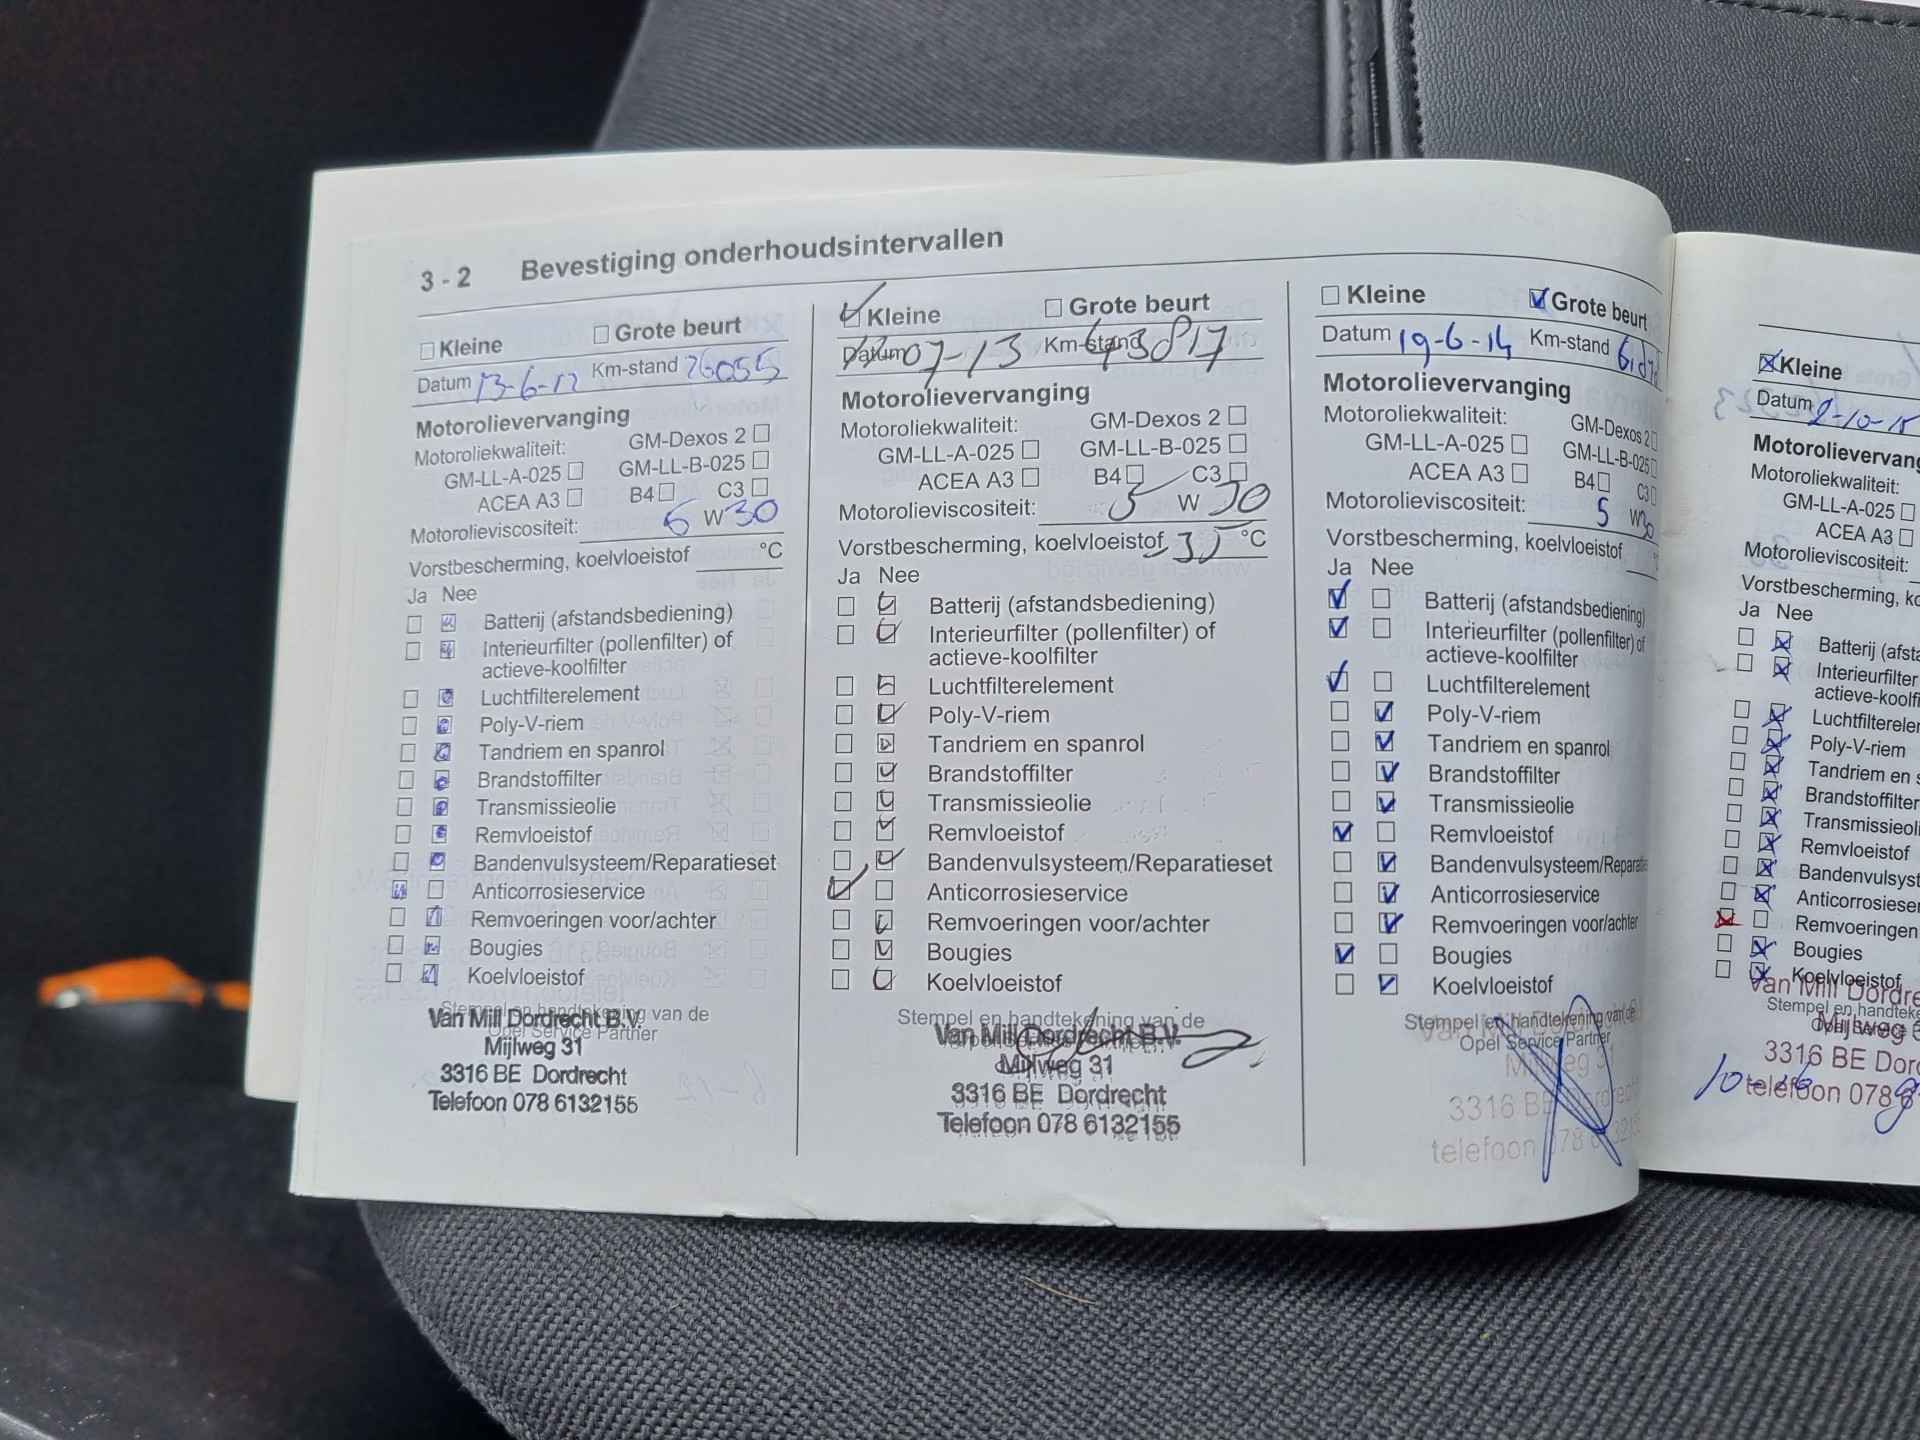 3 - 2 Bevestiging onderhoudsintervallen
Kleine Grote beurt
Datum 13-6-12 Km-stand 26055
Motorolievervanging
Motoroliekwaliteit: GM-Dexos 2
GM-LL-A-025 GM-LL-B-025
ACEA A3 B4 C3
Motorolieviscositeit: 5 W 30
Vorstbescherming, koelvloeistof °C
Ja Nee
Batterij (afstandsbediening)
Interieurfilter (pollenfilter) of
actieve-koolfilter
Luchtfilterelement
Poly-V-riem
Tandriem en spanrol
Brandstoffilter
Transmissieolie
Remvloeistof
Bandenvulsysteem/Reparatieset
Anticorrosieservice
Remvoeringen voor/achter
Bougies
Koelvloeistof
Stempel en handtekening van de
Opel Service Partner
Van Mill Dordrecht B.V.
Mijlweg 31
3316 BE Dordrecht
Telefoon 078 6132155
Kleine Grote beurt
Datum 07-13 Km-stand 43817
Motorolievervanging
Motoroliekwaliteit: GM-Dexos 2
GM-LL-A-025 GM-LL-B-025
ACEA A3 B4 C3
Motorolieviscositeit: 5 W 30
Vorstbescherming, koelvloeistof -35 °C
Ja Nee
Batterij (afstandsbediening)
Interieurfilter (pollenfilter) of
actieve-koolfilter
Luchtfilterelement
Poly-V-riem
Tandriem en spanrol
Brandstoffilter
Transmissieolie
Remvloeistof
Bandenvulsysteem/Reparatieset
Anticorrosieservice
Remvoeringen voor/achter
Bougies
Koelvloeistof
Stempel en handtekening van de
Van Mill Dordrecht B.V.
Mijlweg 31
3316 BE Dordrecht
Telefoon 078 6132155
Kleine Grote beurt
Datum 19-6-14 Km-stand
Motorolievervanging
Motoroliekwaliteit: GM-Dexos 2
GM-LL-A-025 GM-LL-B-025
ACEA A3 B4 C3
Motorolieviscositeit: 5 W 30
Vorstbescherming, koelvloeistof
Ja Nee
Batterij (afstandsbediening)
Interieurfilter (pollenfilter) of
actieve-koolfilter
Luchtfilterelement
Poly-V-riem
Tandriem en spanrol
Brandstoffilter
Transmissieolie
Remvloeistof
Bandenvulsysteem/Repara
Anticorrosieservice
Remvoeringen voor/achter
Bougies
Koelvloeistof
Stempel en handtekening van de
Opel Service Partner
Mijlweg 31
3316 BE Dordrecht
telefoon 078 6132155
Kleine
Datum 2-10-15
Motorolievervang
Motoroliekwaliteit:
GM-LL-A-025
ACEA A3
Motorolieviscositeit:
Vorstbescherming, ko
Ja Nee
Batterij (afsta
Interieurfilter
actieve-koolfi
Luchtfilterele
Poly-V-riem
Tandriem en s
Brandstoffilter
Transmissieoli
Remvloeistof
Bandenvulsyst
Anticorrosieser
Remvoeringen
Bougies
Koelvloeistof
Van Mill Dordre
Stempel en handteke
Opel Service
Mijlweg 3
3316 BE Dor
10-16 telefoon 078 6